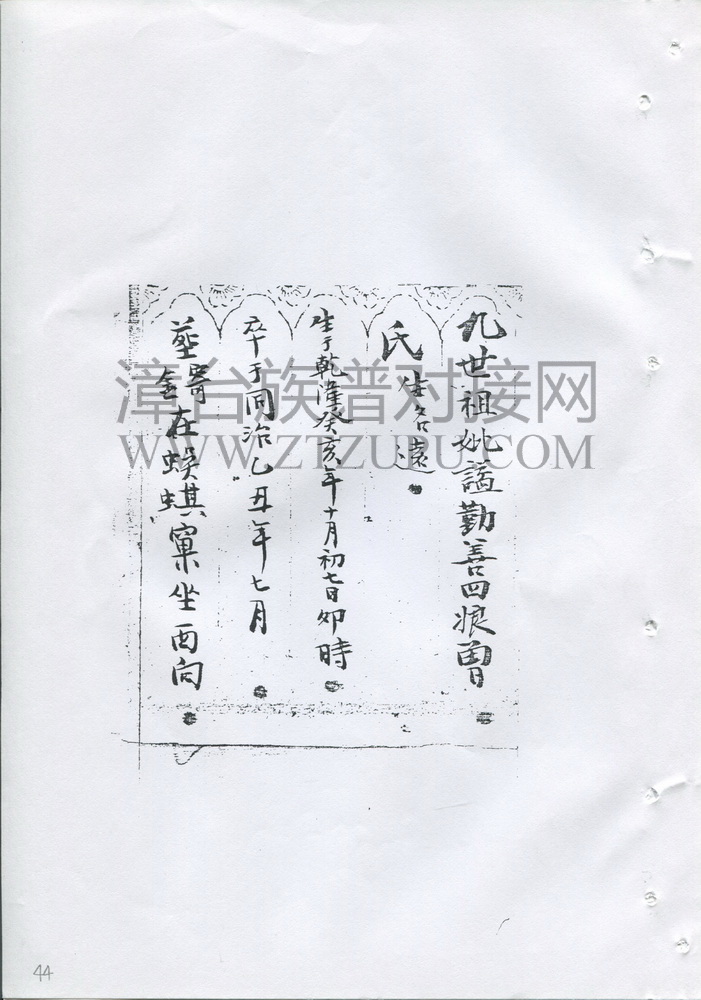 九世祖妣謚勤善四娘曾
氏生名遠
生于乾隆癸亥年十月初七日卯時
卒于同治乙丑年七月
葬寄金在蜈蜞窠坐酉向
漳台族谱对接网
WWW.ZTZUPU.COM
44